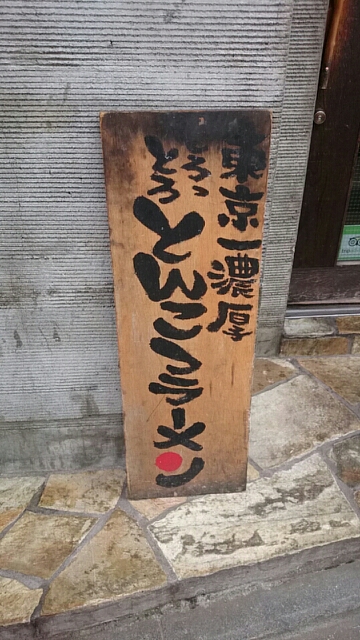 東京一濃厚
とろっ
とろ
とんこくラーメン